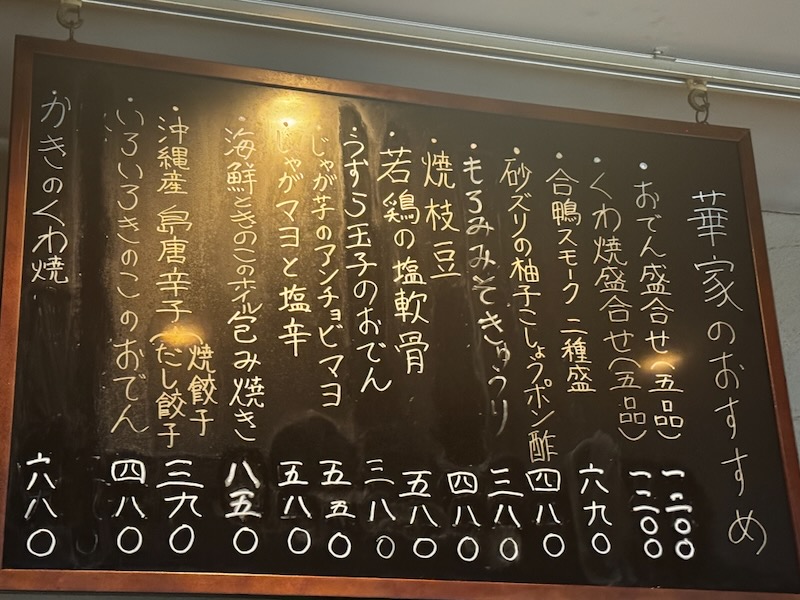 華家のおすすめ
・おでん盛合せ(五品) 一二〇〇
・くわ焼盛合せ(五品) 一二〇〇
・合鴨スモーク二種盛 六九〇
・砂ズリの柚子こしょうポン酢 四八〇
・もろみみそきゅうり 三八〇
・焼枝豆 四八〇
・若鶏の塩軟骨 五八〇
・うずら玉子のおでん 三八〇
・じゃが芋のアンチョビマヨ 五五〇
・じゃがマヨと塩辛 五八〇
・海鮮ときのこのホイル包み焼き 八五〇
・沖縄産 島唐辛子(焼餃子 だし餃子 三九〇
・いろいろきのこのおでん 四八〇
・かきのくわ焼 六八〇